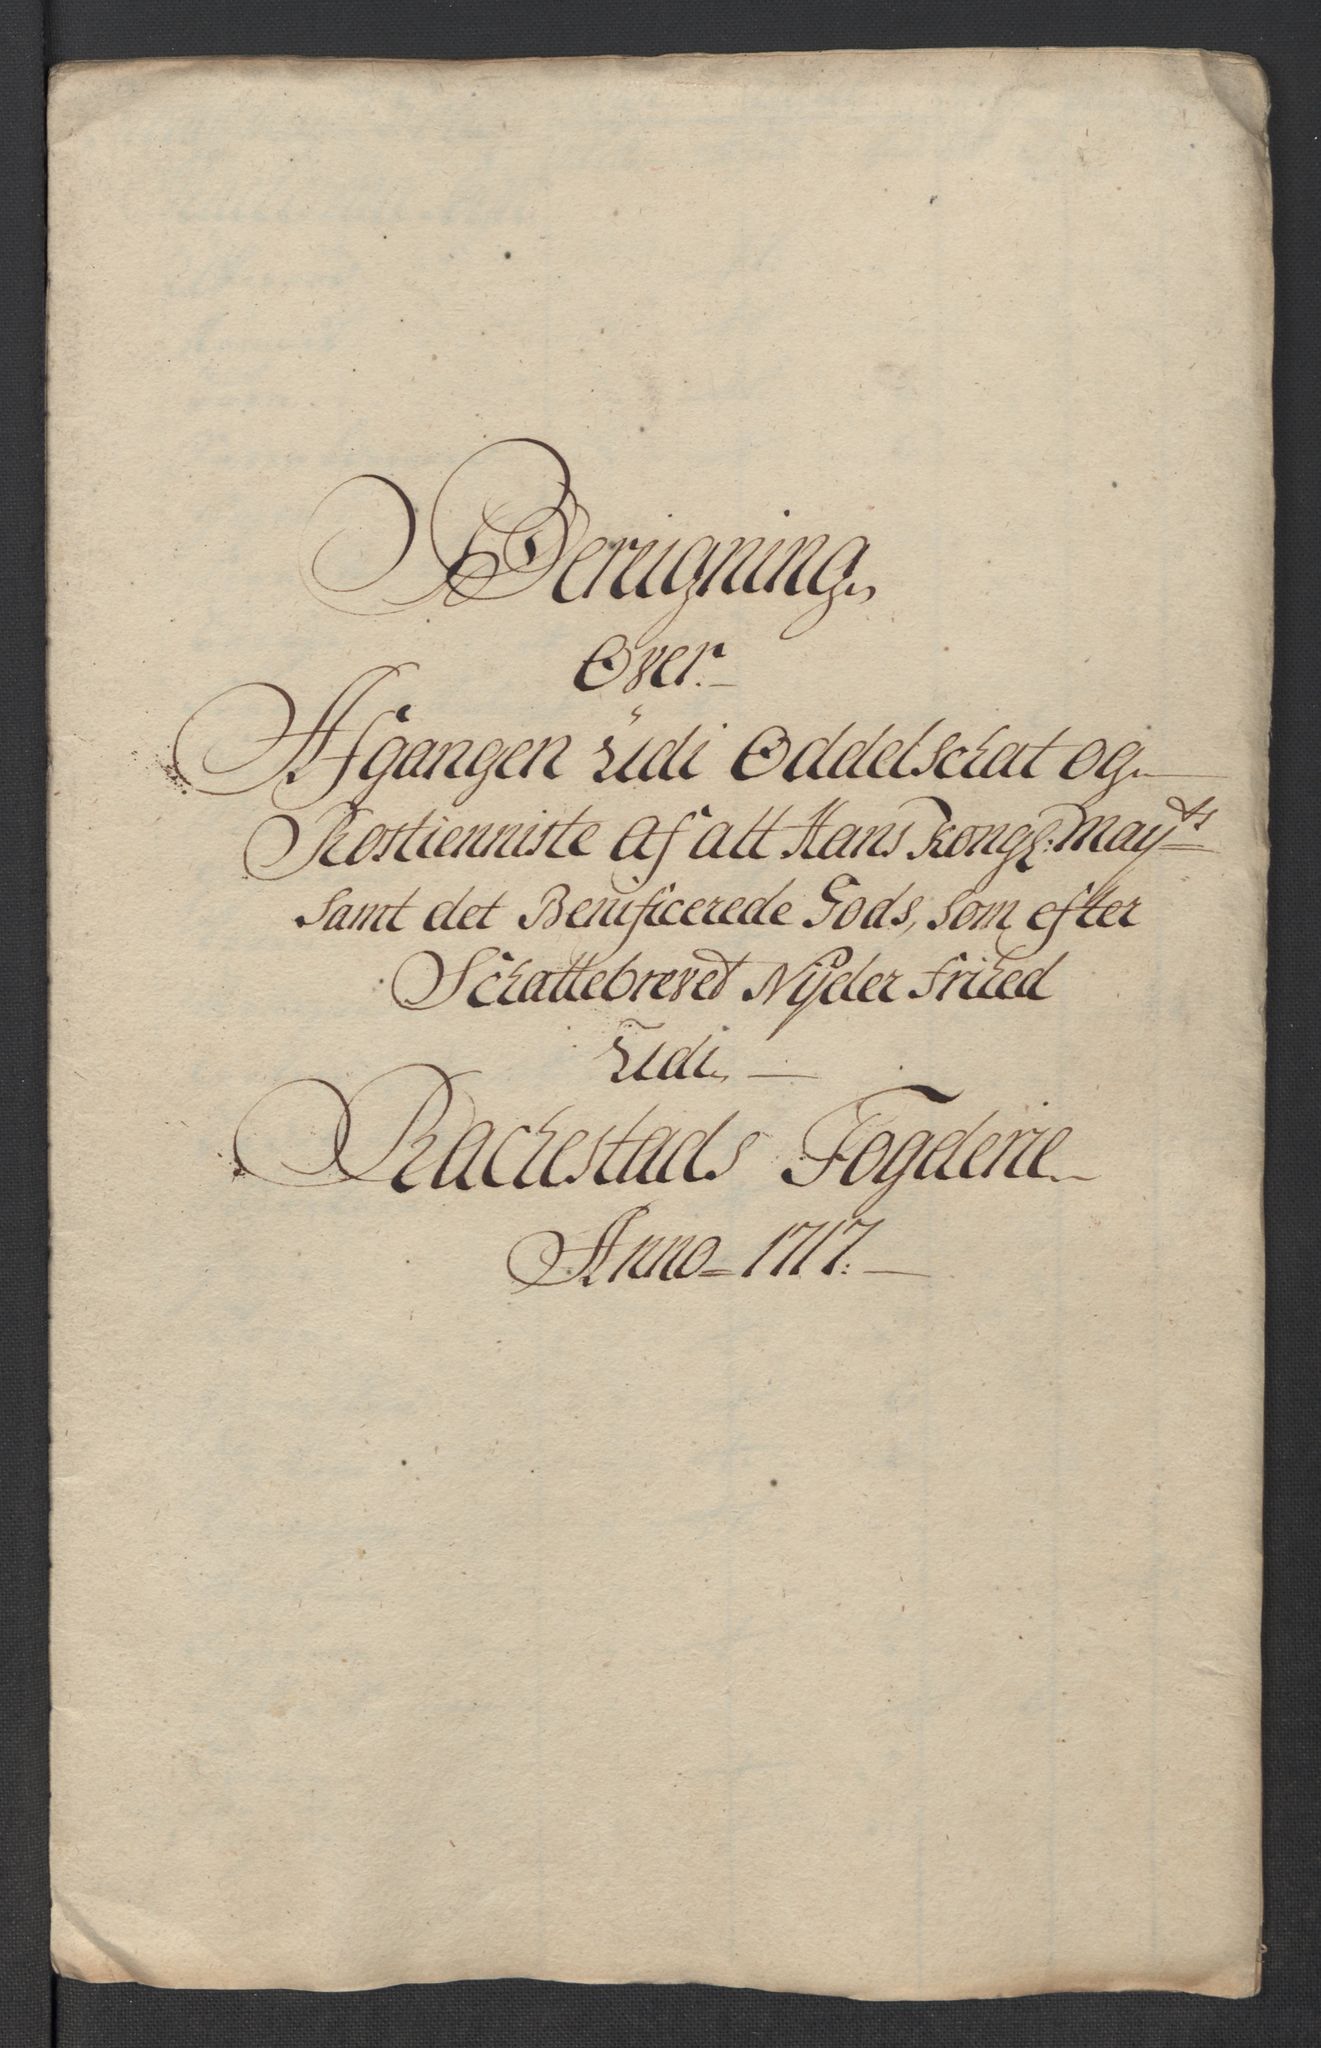 Bereigning
Over
Afgangen Udi Oddelschat og
Rostienniste Af alt Hans Kongl: May<sup>ts</sup>
Samt det Benificerede Gods, som efter
Schattebrevet Nÿder frihed
Udi
Rachestads Fogderie
Anno 1717.